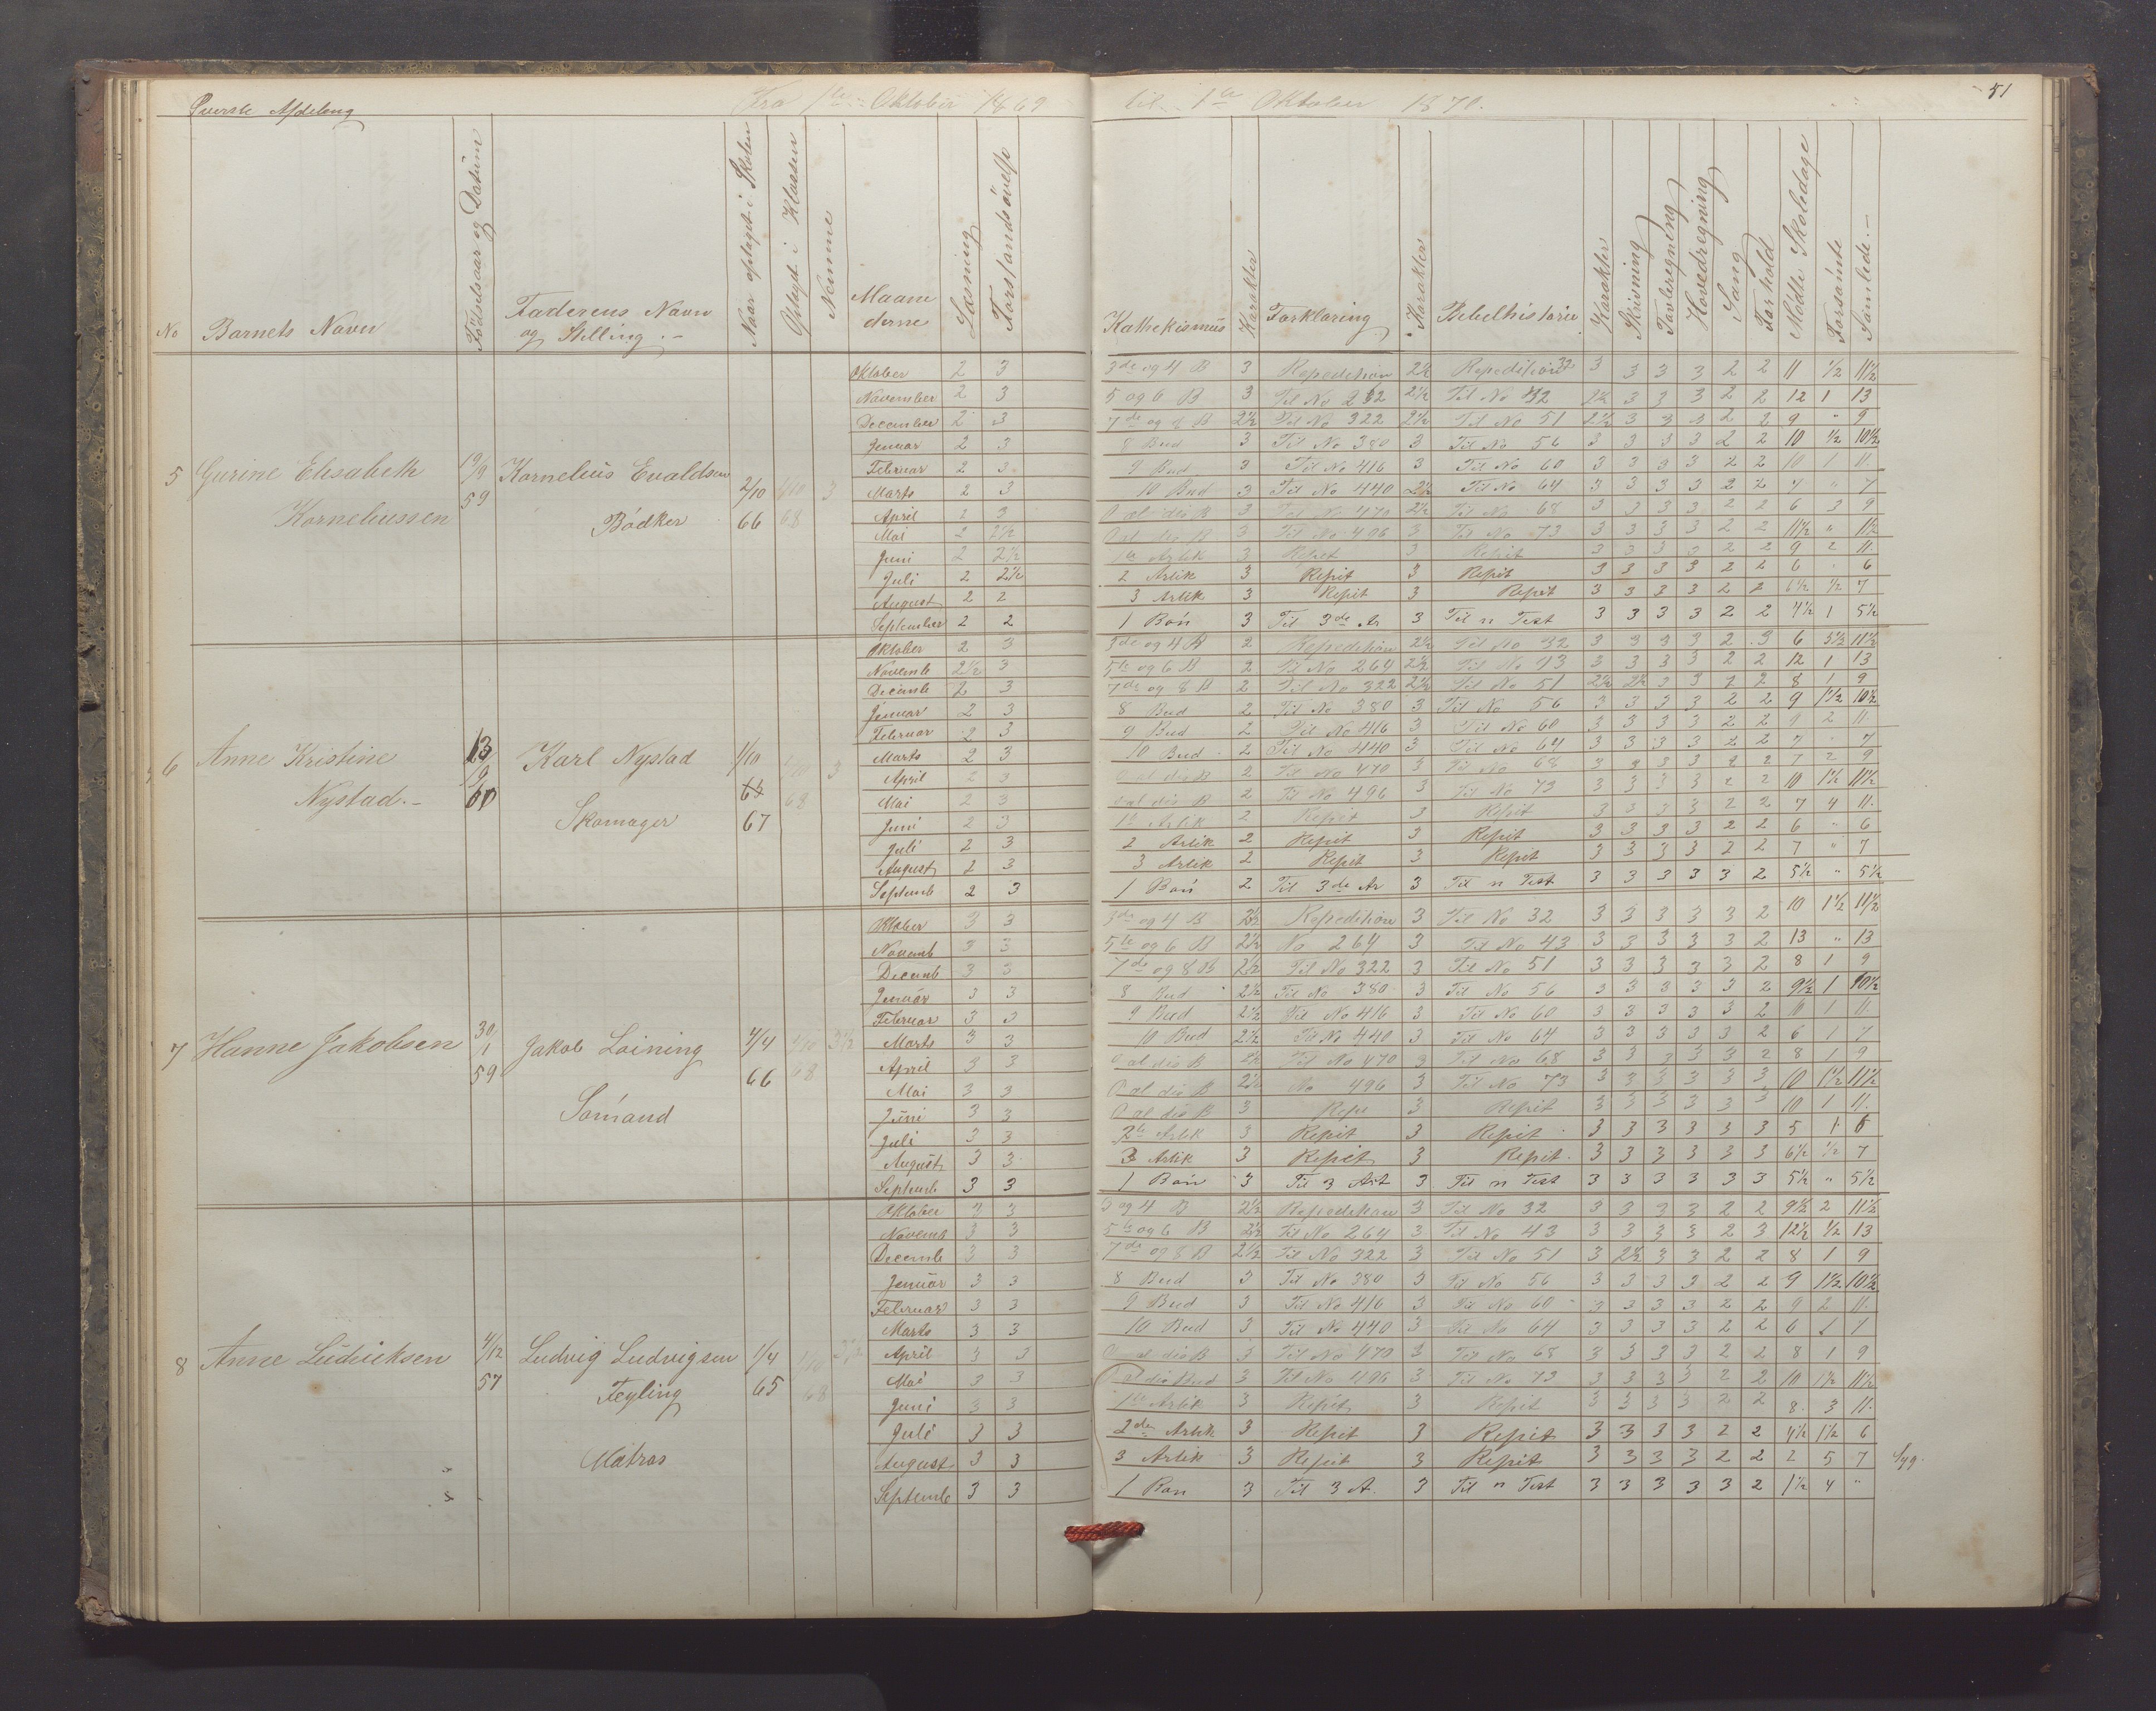 Øverste Afdeling
Fra 1ste Oktober 1869
til 1ste Oktober 1870.
51
No
Barnets Navn
Fødselsaar og Datum
Faderens Navn
og Stilling.-
Naar optaget i Skolen
Opflyt i Klassen
Maane
derne
Læsning
Forstandsøvelse
Kathekismus
Karakter
Forklaring
Karakter
Bibelhistorie
Karakter
Skrivning
Tavleregning
Hovedregning
Sang
Forhold
Mødte Skoledage
Forsømte
Samlede.-
5 Gurine Elisabeth
Korneliussen
19/9
59
Kornelius Evaldsen
Bødker
2/10
66
1/10
68
3
Oktober 2 3 3de og 4 B 3 Repedition 2½ Repedition 32 3 3 3 3 2 2 11 ½ 11½
November 2 3 5 og 6 B 3 Til No 262 2½ Til No 42 2½ 3 3 3 2 2 12 1 13
December 2 3 7de og 8 B 2½ Til No 322 2½ Til No 51 2½ 3 3 3 2 2 9 " 9
Januar 2 3 8 Bud 3 Til No 380 3 Til No 56 3 3 3 3 2 2 10 ½ 10½
Februar 2 3 9 Bud 3 Til No 416 3 Til No 60 3 3 3 3 2 2 10 1 11.
Marts 2 3 10 Bud 3 Til No 440 2½ Til No 64 3 3 3 3 2 2 7 " 7
April 2 3 O al dis B 3 Til No 470 2½ Til No 68 3 3 3 3 2 2 6 3 9
Mai 2 2½ O al dis B 3 Til No 496 3 Til No 73 3 3 3 3 2 2 11½ " 11½
Juni 2 2½ 1ste Artik 3 Repit 3 Repit 3 3 3 3 2 2 9 2 11
Juli 2 2½ 2 Artik 3 Repit 3 Repit 3 3 3 3 2 2 6 " 6
August 2 2 3 Artik 3 Repit 3 Repit 3 3 3 3 2 2 6½ ½ 7
September 2 2 1 Bøn 3 Til 3de Ar 3 Til n Test 3 3 3 3 2 2 4½ 1 5½
6 Anne Kristine
Nystad.-
Karl Nystad
Skomager
1/10
67
1/10
68
3
Oktober 2 3 3de og 4 B 2 Repedition 2½ Til No 32 3 3 3 3 2 3 6 5½ 11½
Novemb 2½ 3 5te og 6 B 2 Til No 264 2½ Til No 43 3 3 3 3 2 2 12 1 13
Decemb 2 3 7de og 8 B 2 Til No 322 2½ Til No 51 2½ 2½ 3 3 2 2 8 1 9
Januar 2 3 8 Bud 2 Til No 380 3 Til No 56 3 3 3 3 2 2 9 1½ 10½
Februar 2 3 9 Bud 2 Til No 416 3 Til No 60 3 3 3 3 2 2 9 2 11
Marts 2 3 10 Bud 2 Til No 440 3 Til No 64 3 3 3 3 2 2 7 " 7
April 2 3 O al dis B 2 Til No 470 3 Til No 68 3 3 3 3 2 2 7 2 9
Mai 2 3 O al dis B 2 Til No 496 3 Til No 73 3 3 3 3 2 2 10 1½ 11½
Juni 2 3 1ste Artik 2 Repit 3 Repit 3 3 3 3 2 2 7 4 11.
Juli 2 3 2 Artik 2 Repit 3 Repit 3 3 3 3 2 2 6 " 6
August 2 3 3 Artik 2 Repit 3 Repit 3 3 3 3 2 2 7 " 7
Septemb 2 3 1 Bøn 2 Til 3de Ar 3 Til n Test 3 3 3 3 3 2 5½ " 5½
7 Hanne Jakobsen
30/1
59
Jakob Loining
Sømand
4/4
66
1/10
68
3½
Oktober 3 3 3de og 4 B 2½ Repedition 3 Til No 32 3 3 3 3 3 2 10 1½ 11½
Novemb 3 3 5te og 6 B 2½ No 264 3 Til No 43 3 3 3 3 3 2 13 " 13
Decemb 3 3 7de og 8 B 2½ Til No 322 3 Til No 51 3 3 3 3 3 2 8 1 9
Januar 3 3 8 Bud 2½ Til No 380 3 Til No 56 3 3 3 3 3 2 9½ 1 10½
Februar 3 3 9 Bud 2½ Til No 416 3 Til No 60 3 3 3 3 3 2 10 1 11.
Marts 3 3 10 Bud 2½ Til No 440 3 Til No 64 3 3 3 3 3 2 6 1 7
April 3 3 O al dis B 2½ Til No 470 3 Til No 68 3 3 3 3 3 2 8 1 9
Mai 3 3 O al dis B 2½ No 496 3 Til No 73 3 3 3 3 3 3 10 1½ 11½
Juni 3 3 O al dis B 3 Repit 3 Repit 3 3 3 3 3 3 10 1 11.
Juli 3 3 2de Artik 3 Repit 3 Repit 3 3 3 3 3 3 5 1 6
August 3 3 3 Artik 3 Repit 3 Repit. 3 3 3 3 3 3 6½ ½ 7
Septemb 3 3 1 Bøn 3 Til 3 Art 3 Til n Test 3 3 3 3 3 3 5½ " 5½
8 Anne Ludvicksen
4/12
57
Ludvig Ludvigsen
Feyling
Matros
1/4
65
1/10
68
3½
Oktober 3 3 3 og 4 B 2½ Repedition 3 Til No 32 3 3 3 3 2 2 9½ 2 11½
Novemb 3 3 5te og 6 B 2½ Til No 264 3 Til No 43 3 3 3 3 2 3 12½ ½ 13
Decemb 3 3 7de og 8 B 2½ Til No 322 3 Til No 51 3 2½ 3 3 2 2 8 1 9
Januar 3 3 8 Bud 3 Til No 380 3 Til No 56 3 3 3 3 2 2 9 1½ 10½
Februar 3 3 9 Bud 3 Til No 416 3 Til No 60 3 3 3 3 2 2 9 2 11.
Marts 3 3 10 Bud 3 Til No 440 3 Til No 64 3 3 3 3 2 2 6 1 7
April 3 3 O al dis B 3 Til No 470 3 Til No 68 3 3 3 3 2 2 8 1 9
Mai 3 3 O al dis Bud 3 Til No 496 3 Til No 73 3 3 3 3 2 2 10 1½ 11½
Juni 3 3 1ste Artik 3 Repit 3 Repit 3 3 3 3 2 2 8 3 11.
Juli 3 3 2den Artik 3 Repit 3 Repit 3 3 3 3 2 2 4½ 1½ 6
August 3 3 3 Artik 3 Repit 3 Repit 3 3 3 3 2 2 2 5 7 Syg.
Septemb 3 3 1 Bøn 3 Til 3 A. 3 Til n Test 3 3 3 3 3 2 1½ 4 "